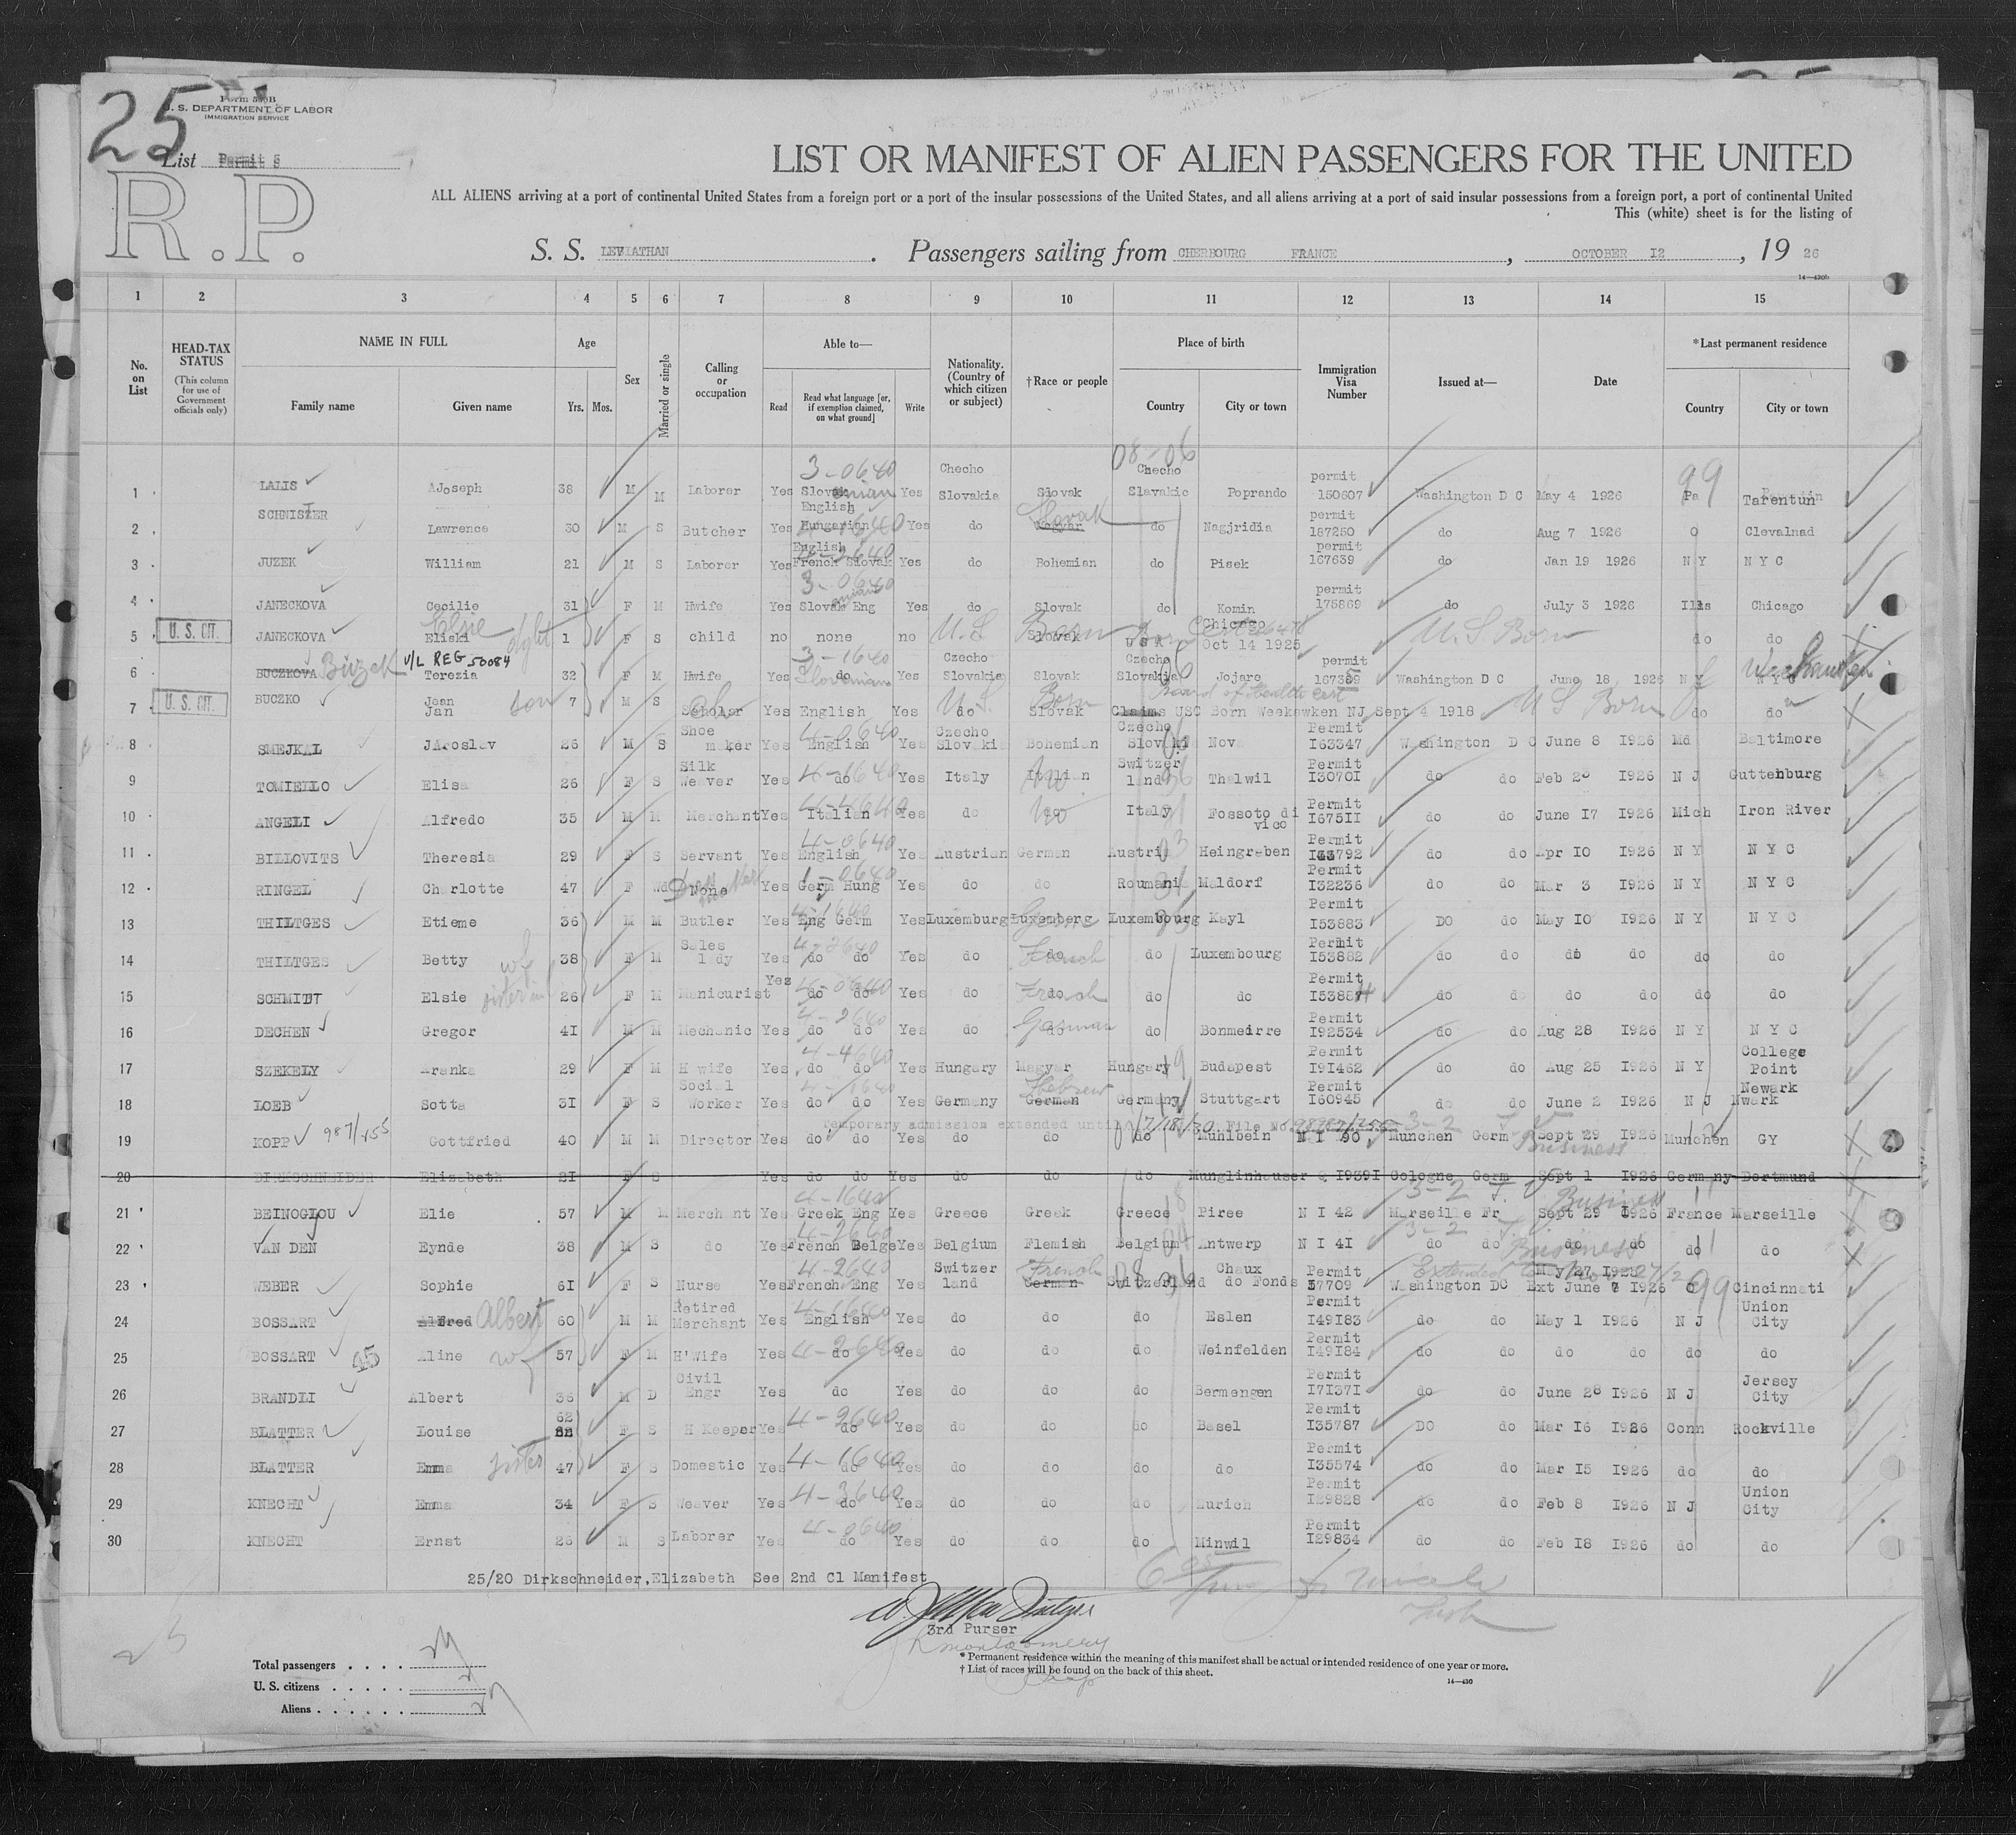 25
Form 500B
U. S. DEPARTMENT OF LABOR
IMMIGRATION SERVICE
List Permit S
R.P.
LIST OR MANIFEST OF ALIEN PASSENGERS FOR THE UNITED
ALL ALIENS arriving at a port of continental United States from a foreign port or a port of the insular possessions of the United States, and all aliens arriving at a port of said insular possessions from a foreign port, a port of continental United
This (white) sheet is for the listing of
S. S. LEVIATHAN . Passengers sailing from CHERBOURG FRANCE , OCTOBER 12 , 19 26
14—430b
1 2 3 4 5 6 7 8 9 10 11 12 13 14 15
No. on List
HEAD-TAX STATUS (This column for use of Government officials only)
NAME IN FULL Family name Given name
Age Yrs. Mos.
Sex
Married or single
Calling or occupation
Able to— Read Read what language [or, if exemption claimed, on what ground] Write
Nationality. (Country of which citizen or subject)
†Race or people
Place of birth Country City or town
Immigration Visa Number
Issued at—
Date
*Last permanent residence Country City or town
08-06 99
1 LALIS AJoseph 38 M M Laborer Yes 3-0640 Slovak Yes Checho Slovakia Slovak Checho Slavakic Poprando permit 150607 Washington D C May 4 1926 Pa Tarentun
2 SCHNISTER Lawrence 30 M S Butcher Yes English Hungarian Yes do Magyar Slovak do Nagjridia permit 187250 do Aug 7 1926 O Clevalnad
3 JUZEK William 21 M S Laborer Yes English French Slovak Yes do Bohemian do Pisek permit 167639 do Jan 19 1926 N Y N Y C
4 JANECKOVA Cecilie 31 F M Hwife Yes 3-0640 Slovak Eng Yes do Slovak do Komin permit 175869 do July 3 1926 Ills Chicago
5 U. S. CIT. JANECKOVA Eliski Elsie dght 1 F S child no none no U.S. Born Slovak U S A Chicago Oct 14 1925 U.S Born do do
6 BUCZKOVA Buzek V/L REG 50084 Terezia 32 F M Hwife Yes 3-1640 do Slovenian Yes Czecho Slovakia Slovak Czecho Slovakia Jojaro permit 167359 Washington D C June 18 1926 N Y N Y C
7 U. S. CIT. BUCZKO Jean Jan son 7 M S Scholar Yes English Yes U.S. Born do Slovak Board of Health cert Claims USC Born Weekawken NJ Sept 4 1918 U S Born do do
8 SMEJKAL JAroslav 26 M S Shoe maker Yes 4-0640 English Yes Czecho Slovakia Bohemian Czecho Slovaki Nova Permit I63347 Washington D C June 8 I926 Md Baltimore
9 TOMIELLO Elisa 26 F S Silk Weaver Yes 4-1640 do Yes Italy Italian Switzer land Thalwil Permit I3070I do do Feb 20 I926 N J Guttenburg
10 ANGELI Alfredo 35 M M Merchant Yes Italian Yes do do Italy Fossoto di vico Permit I675II do do June I7 I926 Mich Iron River
11 BILLOVITS Theresia 29 F S Servant Yes 4-0640 English Yes Austrian German Austria Heingraben Permit I43792 do do Apr IO I926 N Y N Y C
12 RINGEL Charlotte 47 F Wd None Yes Germ Hung Yes do do Roumania Maldorf Permit I32236 do do Mar 3 I926 N Y N Y C
13 THILTGES Etieme 36 M M Butler Yes 4-1640 Eng Germ Yes Luxemburg Luxemberg Luxembourg Kayl Permit I53883 DO do May IO I926 N Y N Y C
14 THILTGES Betty wf 38 F M Sales lady Yes 4-2640 do do Yes do do French do Luxembourg Permit I53882 do do do do do do
15 SCHMIDT Elsie sister in l 26 F M Manicurist Yes 4-0640 do do Yes do do French do do Permit I53884 do do do do do do
16 DECHEN Gregor 4I M M Mechanic Yes 4-2640 do do Yes do do German do Bonmeirre Permit I92534 do do Aug 28 I926 N Y N Y C
17 SZEKELY Aranka 29 F M H wife Yes 4-4640 do do Yes Hungary Magyar Hungary Budapest Permit I9I462 do do Aug 25 I926 N Y College Point
18 LOEB Sotta 3I F S Social Worker Yes 4-1640 do do Yes Germany German Hebrew Germany Stuttgart Permit I60945 do do June 2 I926 N J Newark Nwark
Temporary admission extended until 7/18/30 File No.
19 KOPP 987/455 Gottfried 40 M M Director Yes do do Yes do do do Muhlbein N I 90 Munchen Germ 3-2 Sept 29 I926 Business Munchen GY
20 DIRKSCHNEIDER Elizabeth 2I F S Yes do do Yes do do do Munglinhauser Q I939I Cologne Germ Sept 1 I926 Germany Dortmund
21 BEINOGLOU Elie 57 M M Merchant Yes 4-1640 Greek Eng Yes Greece Greek Greece Piree N I 42 Marseille Fr 3-2 Sept 29 I926 Business France Marseille
22 VAN DEN Eynde 38 M S do Yes 4-2640 French Belge Yes Belgium Flemish Belgium Antwerp N I 4I 3-2 do do do do Business do do
23 WEBER Sophie 6I F S Nurse Yes 4-2640 French Eng Yes Switzer land German French Switzerland Chaux do Fonds Permit I7709 Washington DC May 27 I925 Ext June 7 I926 O Cincinnati
24 BOSSART Alfred Albert 60 M M Retired Merchant Yes 4-1640 English Yes do do do Eslen Permit I49I83 do do May 1 I926 N J Union City
25 BOSSART Aline wf 57 F M H'Wife Yes 4-2640 do Yes do do do Weinfelden Permit I49I84 do do do do do do
26 BRANDLI Albert 36 M D Civil Engr Yes do Yes do do do Bermengen Permit I7I37I do do June 28 I926 N J Jersey City
27 BLATTER Louise 62 F S H Keeper Yes 4-2640 do Yes do do do Basel Permit I35787 DO do Mar I6 I926 Conn Rockville
28 BLATTER Emma sister 47 F S Domestic Yes 4-1640 do Yes do do do do Permit I35574 do do Mar I5 I926 do do
29 KNECHT Emma 34 F S Weaver Yes 4-3640 do Yes do do do Aurich Permit I29828 do do Feb 8 I926 N J Union City
30 KNECHT Ernst 26 M S Laborer Yes 4-0640 do Yes do do do Minwil Permit I29834 do do Feb I8 I926 do do
25/20 Dirkschneider,Elizabeth See 2nd Cl Manifest
3rd Purser
Total passengers . . . .
U. S. citizens . . . . .
Aliens . . . . . .
* Permanent residence within the meaning of this manifest shall be actual or intended residence of one year or more.
† List of races will be found on the back of this sheet.
14—430